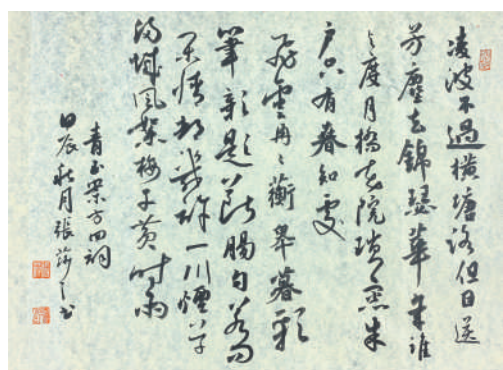 凌波不過橫塘路但目送
芳塵去錦瑟華年誰
与度月橋花院瑣窗朱
戶只有春知處
飛雲冉々蘅皋暮彩
筆新題斷腸句若問
閑情都幾許一川煙草
滿城風絮梅子黃時雨
青玉案方回詞
甲辰秋月張莎書